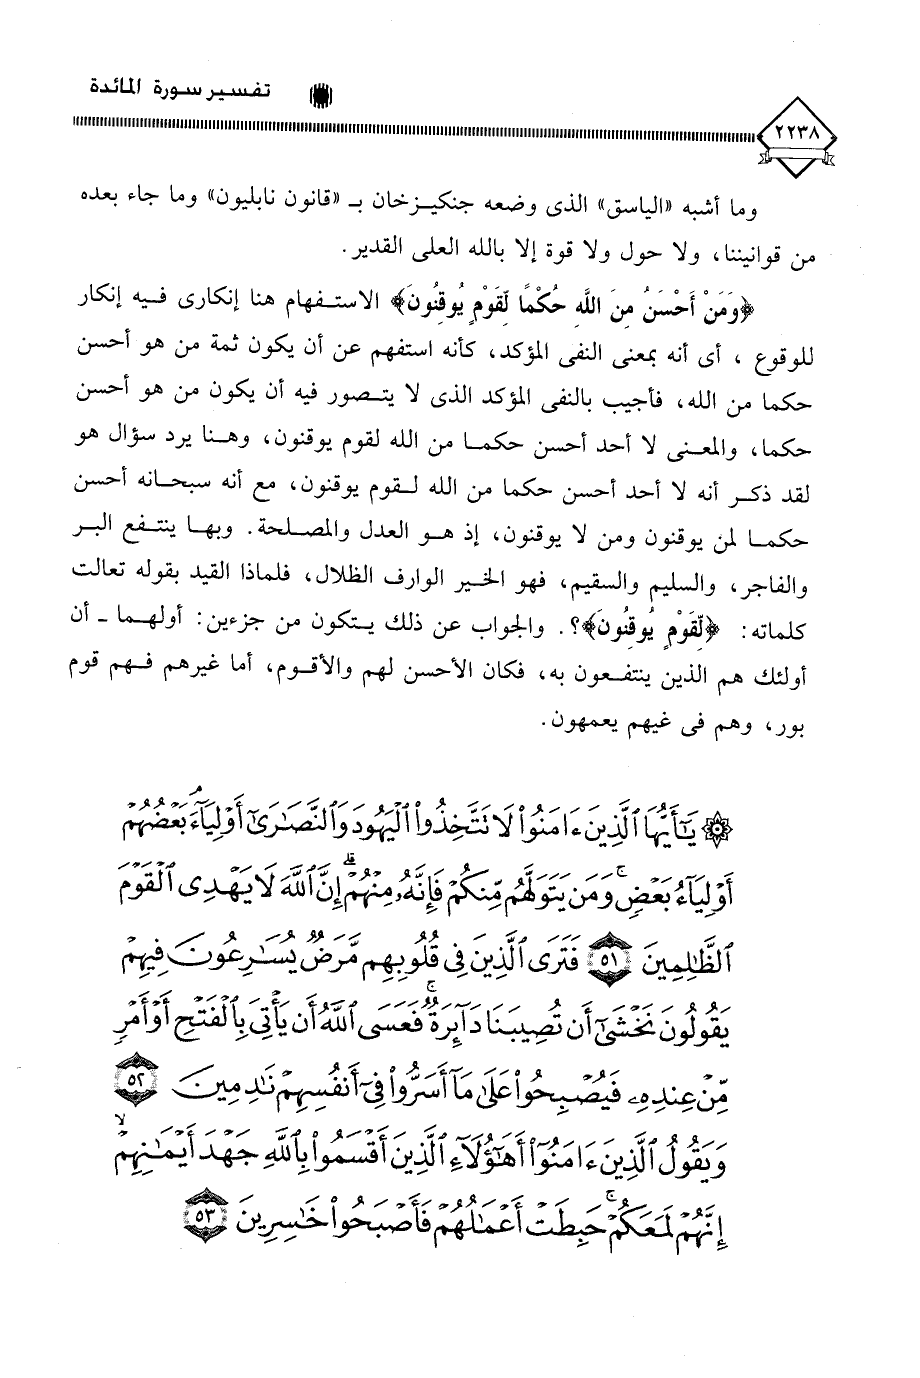 تفسير سورة المائدة
٢٢٣٨
وما أشبه «الياسق» الذى وضعه جنكيزخان بـ «قانون نابليون» وما جاء بعده
من قوانيننا، ولا حول ولا قوة إلا بالله العلى القدير.
﴿وَمَنْ أَحْسَنُ مِنَ اللَّهِ حُكْمًا لِّقَوْمٍ يُوقِنُونَ﴾ الاستفهام هنا إنكارى فيه إنكار
للوقوع ، أى أنه بمعنى النفى المؤكد، كأنه استفهم عن أن يكون ثمة من هو أحسن
حكما من الله، فأجيب بالنفى المؤكد الذى لا يتصور فيه أن يكون من هو أحسن
حكما، والمعنى لا أحد أحسن حكما من الله لقوم يوقنون، وهنا يرد سؤال هو
لقد ذكر أنه لا أحد أحسن حكما من الله لقوم يوقنون، مع أنه سبحانه أحسن
حكما لمن يوقنون ومن لا يوقنون، إذ هو العدل والمصلحة. وبها ينتفع البر
والفاجر، والسليم والسقيم، فهو الخير الوارف الظلال، فلماذا القيد بقوله تعالت
كلماته: ﴿لِّقَوْمٍ يُوقِنُونَ﴾؟. والجواب عن ذلك يتكون من جزءين: أولهما ـ أن
أولئك هم الذين ينتفعون به، فكان الأحسن لهم والأقوم، أما غيرهم فهم قوم
بور، وهم فى غيهم يعمهون.
۞ يَـٰٓأَيُّهَا ٱلَّذِينَ ءَامَنُوا۟ لَا تَتَّخِذُوا۟ ٱلْيَهُودَ وَٱلنَّصَـٰرَىٰٓ أَوْلِيَآءَ ۘ بَعْضُهُمْ
أَوْلِيَآءُ بَعْضٍ ۚ وَمَن يَتَوَلَّهُم مِّنكُمْ فَإِنَّهُۥ مِنْهُمْ ۗ إِنَّ ٱللَّهَ لَا يَهْدِى ٱلْقَوْمَ
ٱلظَّـٰلِمِينَ ٥١ فَتَرَى ٱلَّذِينَ فِى قُلُوبِهِم مَّرَضٌ يُسَـٰرِعُونَ فِيهِمْ
يَقُولُونَ نَخْشَىٰٓ أَن تُصِيبَنَا دَآئِرَةٌ ۚ فَعَسَى ٱللَّهُ أَن يَأْتِىَ بِٱلْفَتْحِ أَوْ أَمْرٍ
مِّنْ عِندِهِۦ فَيُصْبِحُوا۟ عَلَىٰ مَآ أَسَرُّوا۟ فِىٓ أَنفُسِهِمْ نَـٰدِمِينَ ٥٢
وَيَقُولُ ٱلَّذِينَ ءَامَنُوٓا۟ أَهَـٰٓؤُلَآءِ ٱلَّذِينَ أَقْسَمُوا۟ بِٱللَّهِ جَهْدَ أَيْمَـٰنِهِمْ ۙ
إِنَّهُمْ لَمَعَكُمْ ۚ حَبِطَتْ أَعْمَـٰلُهُمْ فَأَصْبَحُوا۟ خَـٰسِرِينَ ٥٣